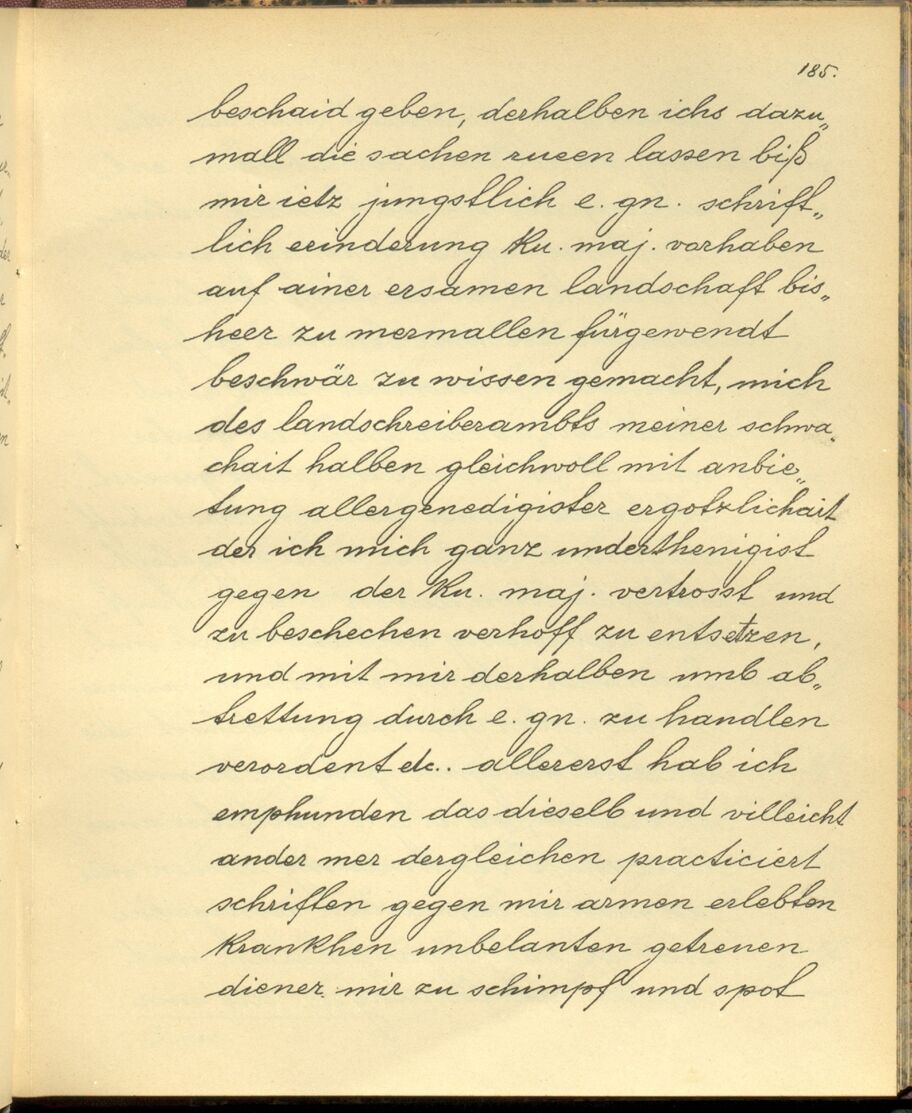 185.
beschaid geben, derhalben ichs dazu„
mall die sachen rueen lassen biß
mir ietz jungstlich e. gn. schrift„
lich erinderung Ku. maj. vorhaben
auf ainer ersamen landschaft bis„
heer zu mermallen fürgewendt
beschwär zu wissen gemacht, mich
des landschreiberambts meiner schwa„
chait halben gleichwoll mit anbie„
tung allergenedigister ergotzlichait
der ich mich ganz underthenigist
gegen der Ku. maj. vertrosst und
zu beschechen verhoff zu entsetzen,
und mit mir derhalben umb ab„
trettung durch e. gn. zu handlen
verordent etc.. allererst hab ich
emphunden das dieselb und villeicht
ander mer dergleichen practiciert
schriften gegen mir armen erlebten
Krankhen unbelanten getreuen
diener mir zu schimpf und spot